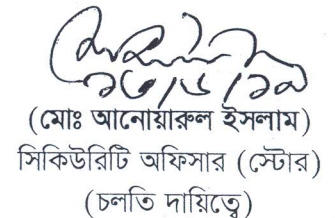 ১৩/৬/১৯
(মোঃ আনোয়ারুল ইসলাম)
সিকিউরিটি অফিসার (স্টোর)
(চলতি দায়িত্বে)